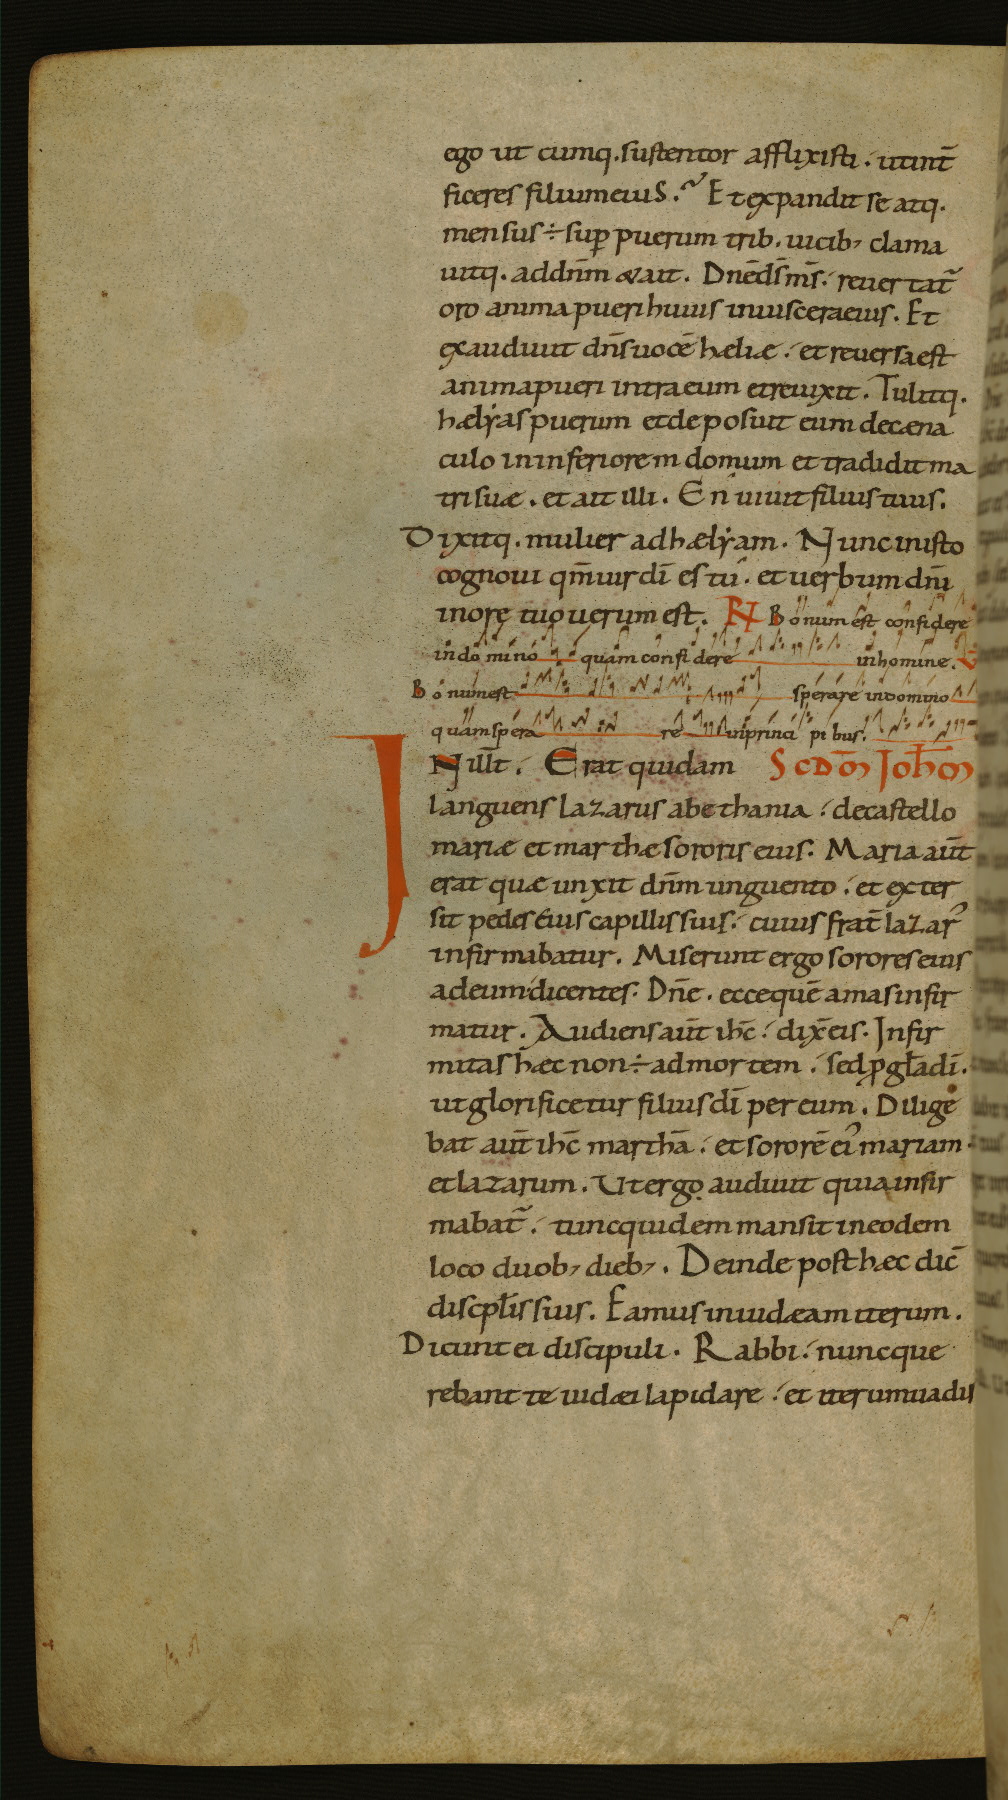 ego ut cumq. sustentor afflixisti. ut int̄
ficeres filium eius. Et expandit se atq.
mensus ÷ sup̱ puerum trib. uicib, clama
uitq. ad dnm̄ & ait. Dnē ds̄ ms̄. reuertat̄
oro anima pueri huius in uiscera eius. Et
exaudiuit dn̄s uocē hæliæ. et reuersa est
anima pueri intra eum et reuixit. Tulitq.
hælẏas puerum et deposuit eum de cæna
culo in inferiorem domum et tradidit ma
tri suæ. et ait illi. En uiuit filius tuus.
Dixitq. mulier ad hælẏam. Nunc in isto
cognoui qm̄ uir di ̄ es tu. et uerbum dn̄i
in ore tuo uerum est. Bonum est confidere
in domino quam confidere in homine. V
Bonum est sperare in domino
quam sperare in principibus.
IN illt̄. Erat quidam Scdm̄ Johm̄
languens lazarus a bethania. de castello
mariæ et marthæ sororis eius. Maria aut̄
erat quæ unxit dnm̄ unguento. et exter
sit pedes eius capillis suis. cuius frat̄ lazar᾽
infirmabatur. Miserunt ergo sorores eius
ad eum dicentes. Dnē. ecce quē amas infir
matur. Audiens aut̄ ihc̄. dix̄ eis. Infir
mitas hæc non ÷ ad mortem. sed p̱ gła di ̄.
ut glorificetur filius di ̄ per eum. Dilige
bat aut̄ ihc̄ marthā. et sororē ei᾽ mariam.
et lazarum. Ut ergo audiuit quia infir
mabat̄. tunc quidem mansit in eodem
loco duob, dieb,. Deinde post hæc dic̄
discpl̄is suis. Eamus in iudæam iterum.
Dicunt ei discipuli. Rabbi. nunc que
rebant te iudæi lapidare. et iterum uadis